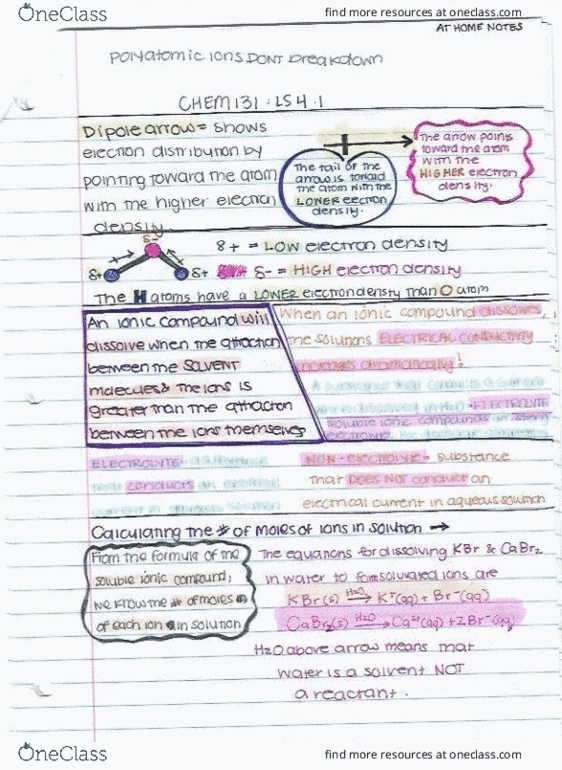 OneClass
find more resources at oneclass.com
AT HOME NOTES
Polyatomic ions DONT breakdown
CHEM 131: LS 4.1
Dipole arrow = shows
electron distribution by
pointing toward the atom
with the higher electron
density.
The tail of the
arrow is toward
the atom with the
LOWER electron
density.
The arrow points
toward the atom
with the
HIGHER electron
density.
δ-
δ+
δ+
δ+ = LOW electron density
δ- = HIGH electron density
The H atoms have a LOWER electron density than O atom
An ionic compound will
dissolve when the attraction
between the SOLVENT
molecules & the ions is
greater than the attraction
between the ions themselves
When an ionic compound dissolves,
the solutions ELECTRICAL CONDUCTIVITY
increases dramatically!
A substance that conducts a current
when dissolved in H2O = ELECTROLYTE
soluble ionic compounds
ELECTROLYTE = a substance
that conducts an electrical
current in aqueous solution
NON-electrolyte = substance
that DOES NOT conduct an
electrical current in aqueous solution
Calculating the # of moles of ions in solution →
From the formula of the
soluble ionic compound,
we know the # of moles
of each ion in solution
The equations for dissolving KBr & CaBr2
in water to form solvated ions are
KBr(s) H2O→ K+(aq) + Br-(aq)
CaBr2(s) H2O→ Ca2+(aq) + 2Br-(aq)
H2O above arrow means that
water is a solvent NOT
a reactant.
OneClass
find more resources at oneclass.com